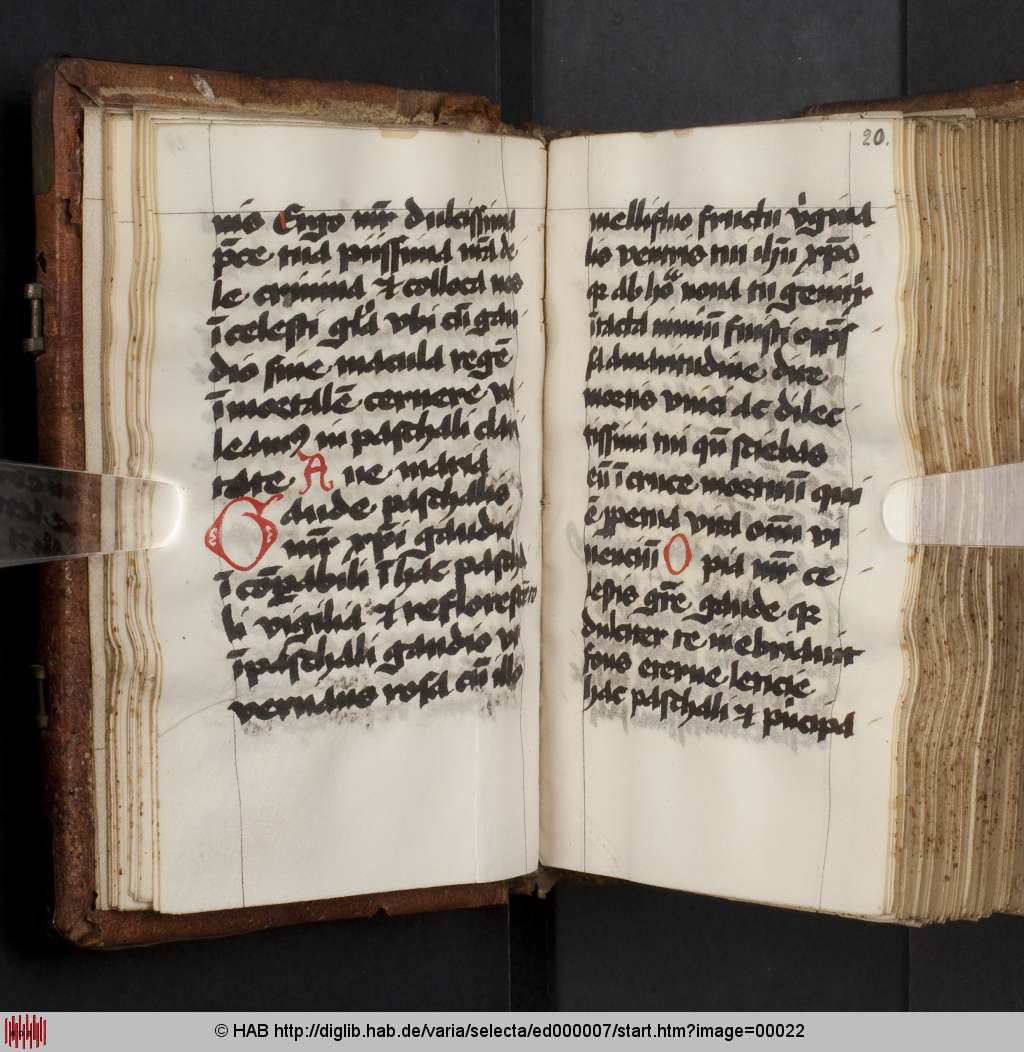 nis Ergo mr̄ dulcissima
p̄ce tuā piissima nr̄a de
le crimina et colloca nos
ī celesti gl̄a vbi cū gau
dio sine macula regē
īmortalē cernere va
leamꝰ in paschali clari
tate Aue maria
Gaude paschalis
mr̄ xp̄i gaudii
ī hac pascha
li vigilia et
ī paschali gaudio
vernans rosa cū illo
mellifluo fructu v̄gina
lis ventris tui ih̄u xp̄o
qr ab hoͣ nona tu genitͥx
ītacta
sa amaritudine dire
mortis vinci ac dilec
tissimi tui qn̄ sciebas
eū ī cruce mortuū qui
ē ꝑpetua vita om̄i vi
uenciū O pia mr̄ ce
lestis gr̄e gaude qr
dulciter te inebriauit
fons eterne leticie
hac paschali et p̄ncipa
20.
© HAB http://diglib.hab.de/varia/selecta/ed000007/start.htm?image=00022